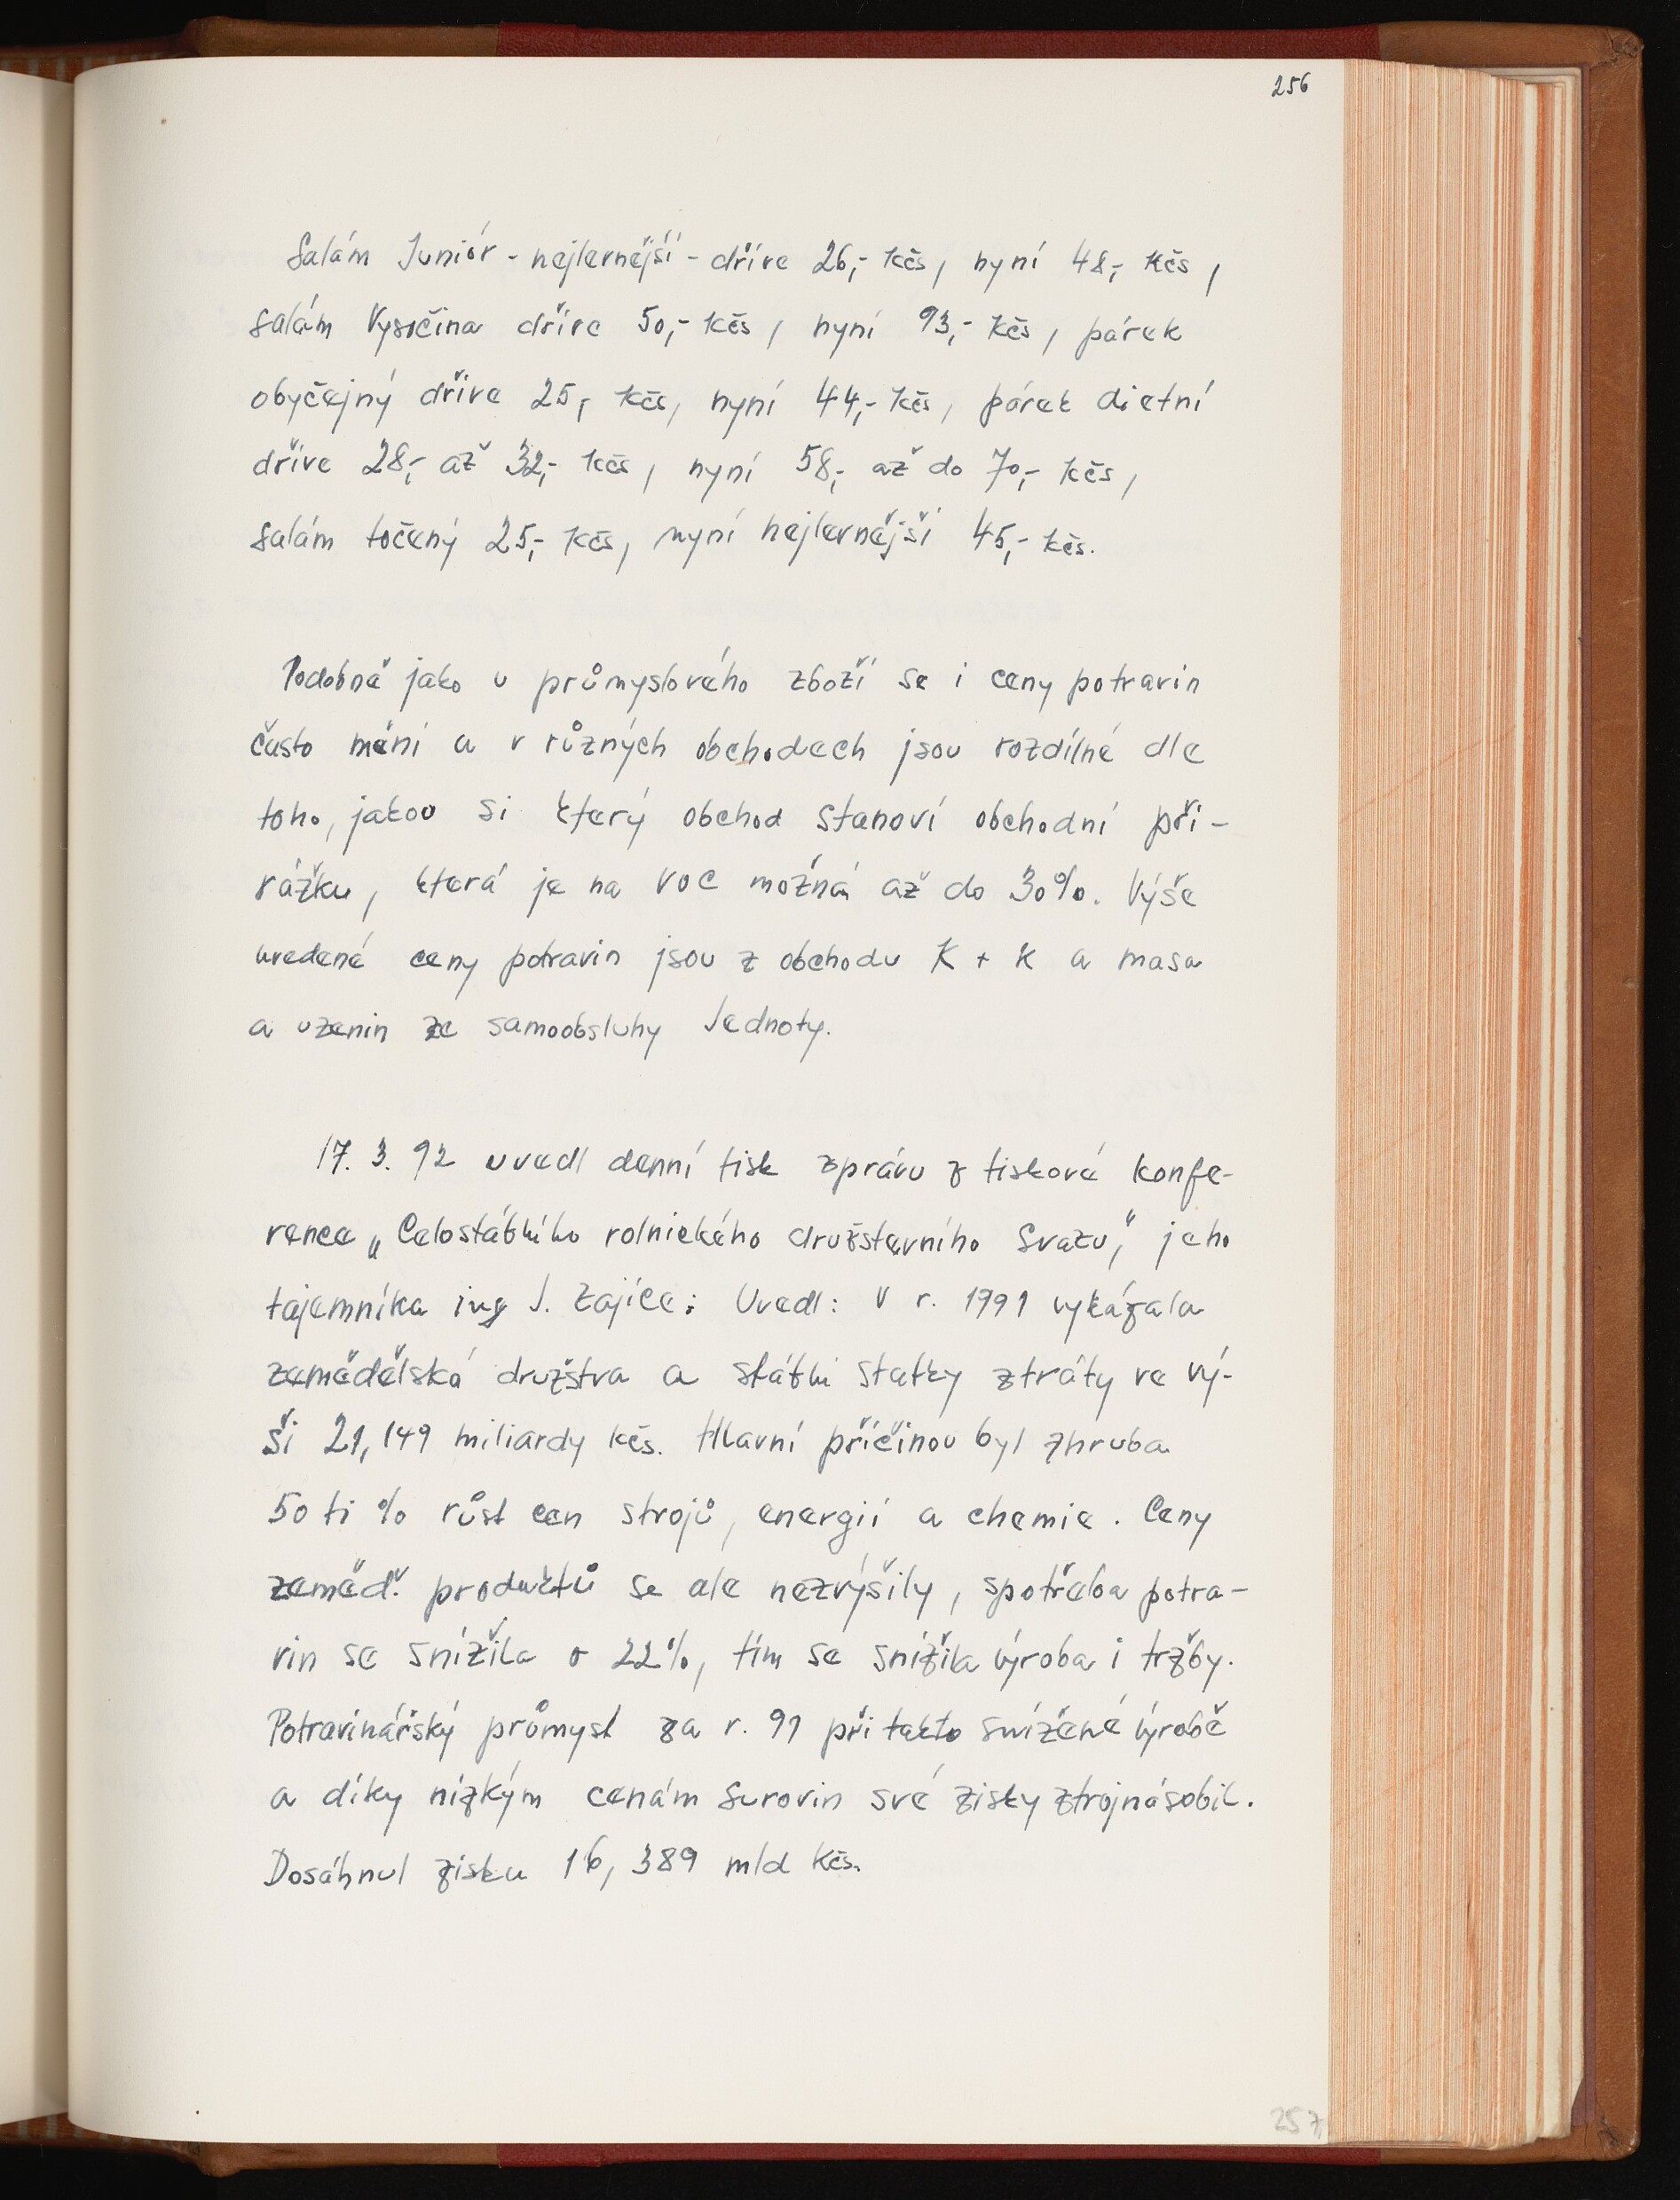 256
Salám Juniór - nejlevnější - dříve 26,- Kčs, nyní 48,- Kčs,
salám Vysočina dříve 50,- Kčs, nyní 93,- Kčs, párek
obyčejný dříve 25,- Kčs, nyní 44,- Kčs, párek dietní
dříve 28,- až 32,- Kčs, nyní 58,- až do 70,- Kčs,
salám točený 25,- Kčs, nyní nejlevnější 45,- Kčs.
Podobně jako u průmyslového zboží se i ceny potravin
často mění a v různých obchodech jsou rozdílné dle
toho, jakou si který obchod stanoví obchodní při-
rážku, která je na VOC možná až do 30%. Výše
uvedené ceny potravin jsou z obchodu K + K a masa
a uzenin ze samoobsluhy Jednoty.
17. 3. 92 uvedl denní tisk zprávu z tiskové konfe-
rence „Celostátního rolnického družstevního Svazu," jeho
tajemníka ing J. Zajíce: Uvedl: V r. 1991 vykázala
zemědělská družstva a státní statky ztráty ve vý-
ši 21,149 miliardy kčs. Hlavní příčinou byl zhruba
50 ti % růst cen strojů, energií a chemie. Ceny
zeměď. produktů se ale nezvýšily, spotřeba potra-
vin se snížila o 22%, tím se snížila výroba i tržby.
Potravinářský průmysl za r. 91 při takto snížené výrobě
a díky nízkým cenám surovin své zisky ztrojnásobil.
Dosáhnul zisku 16,389 mld Kčs.
257